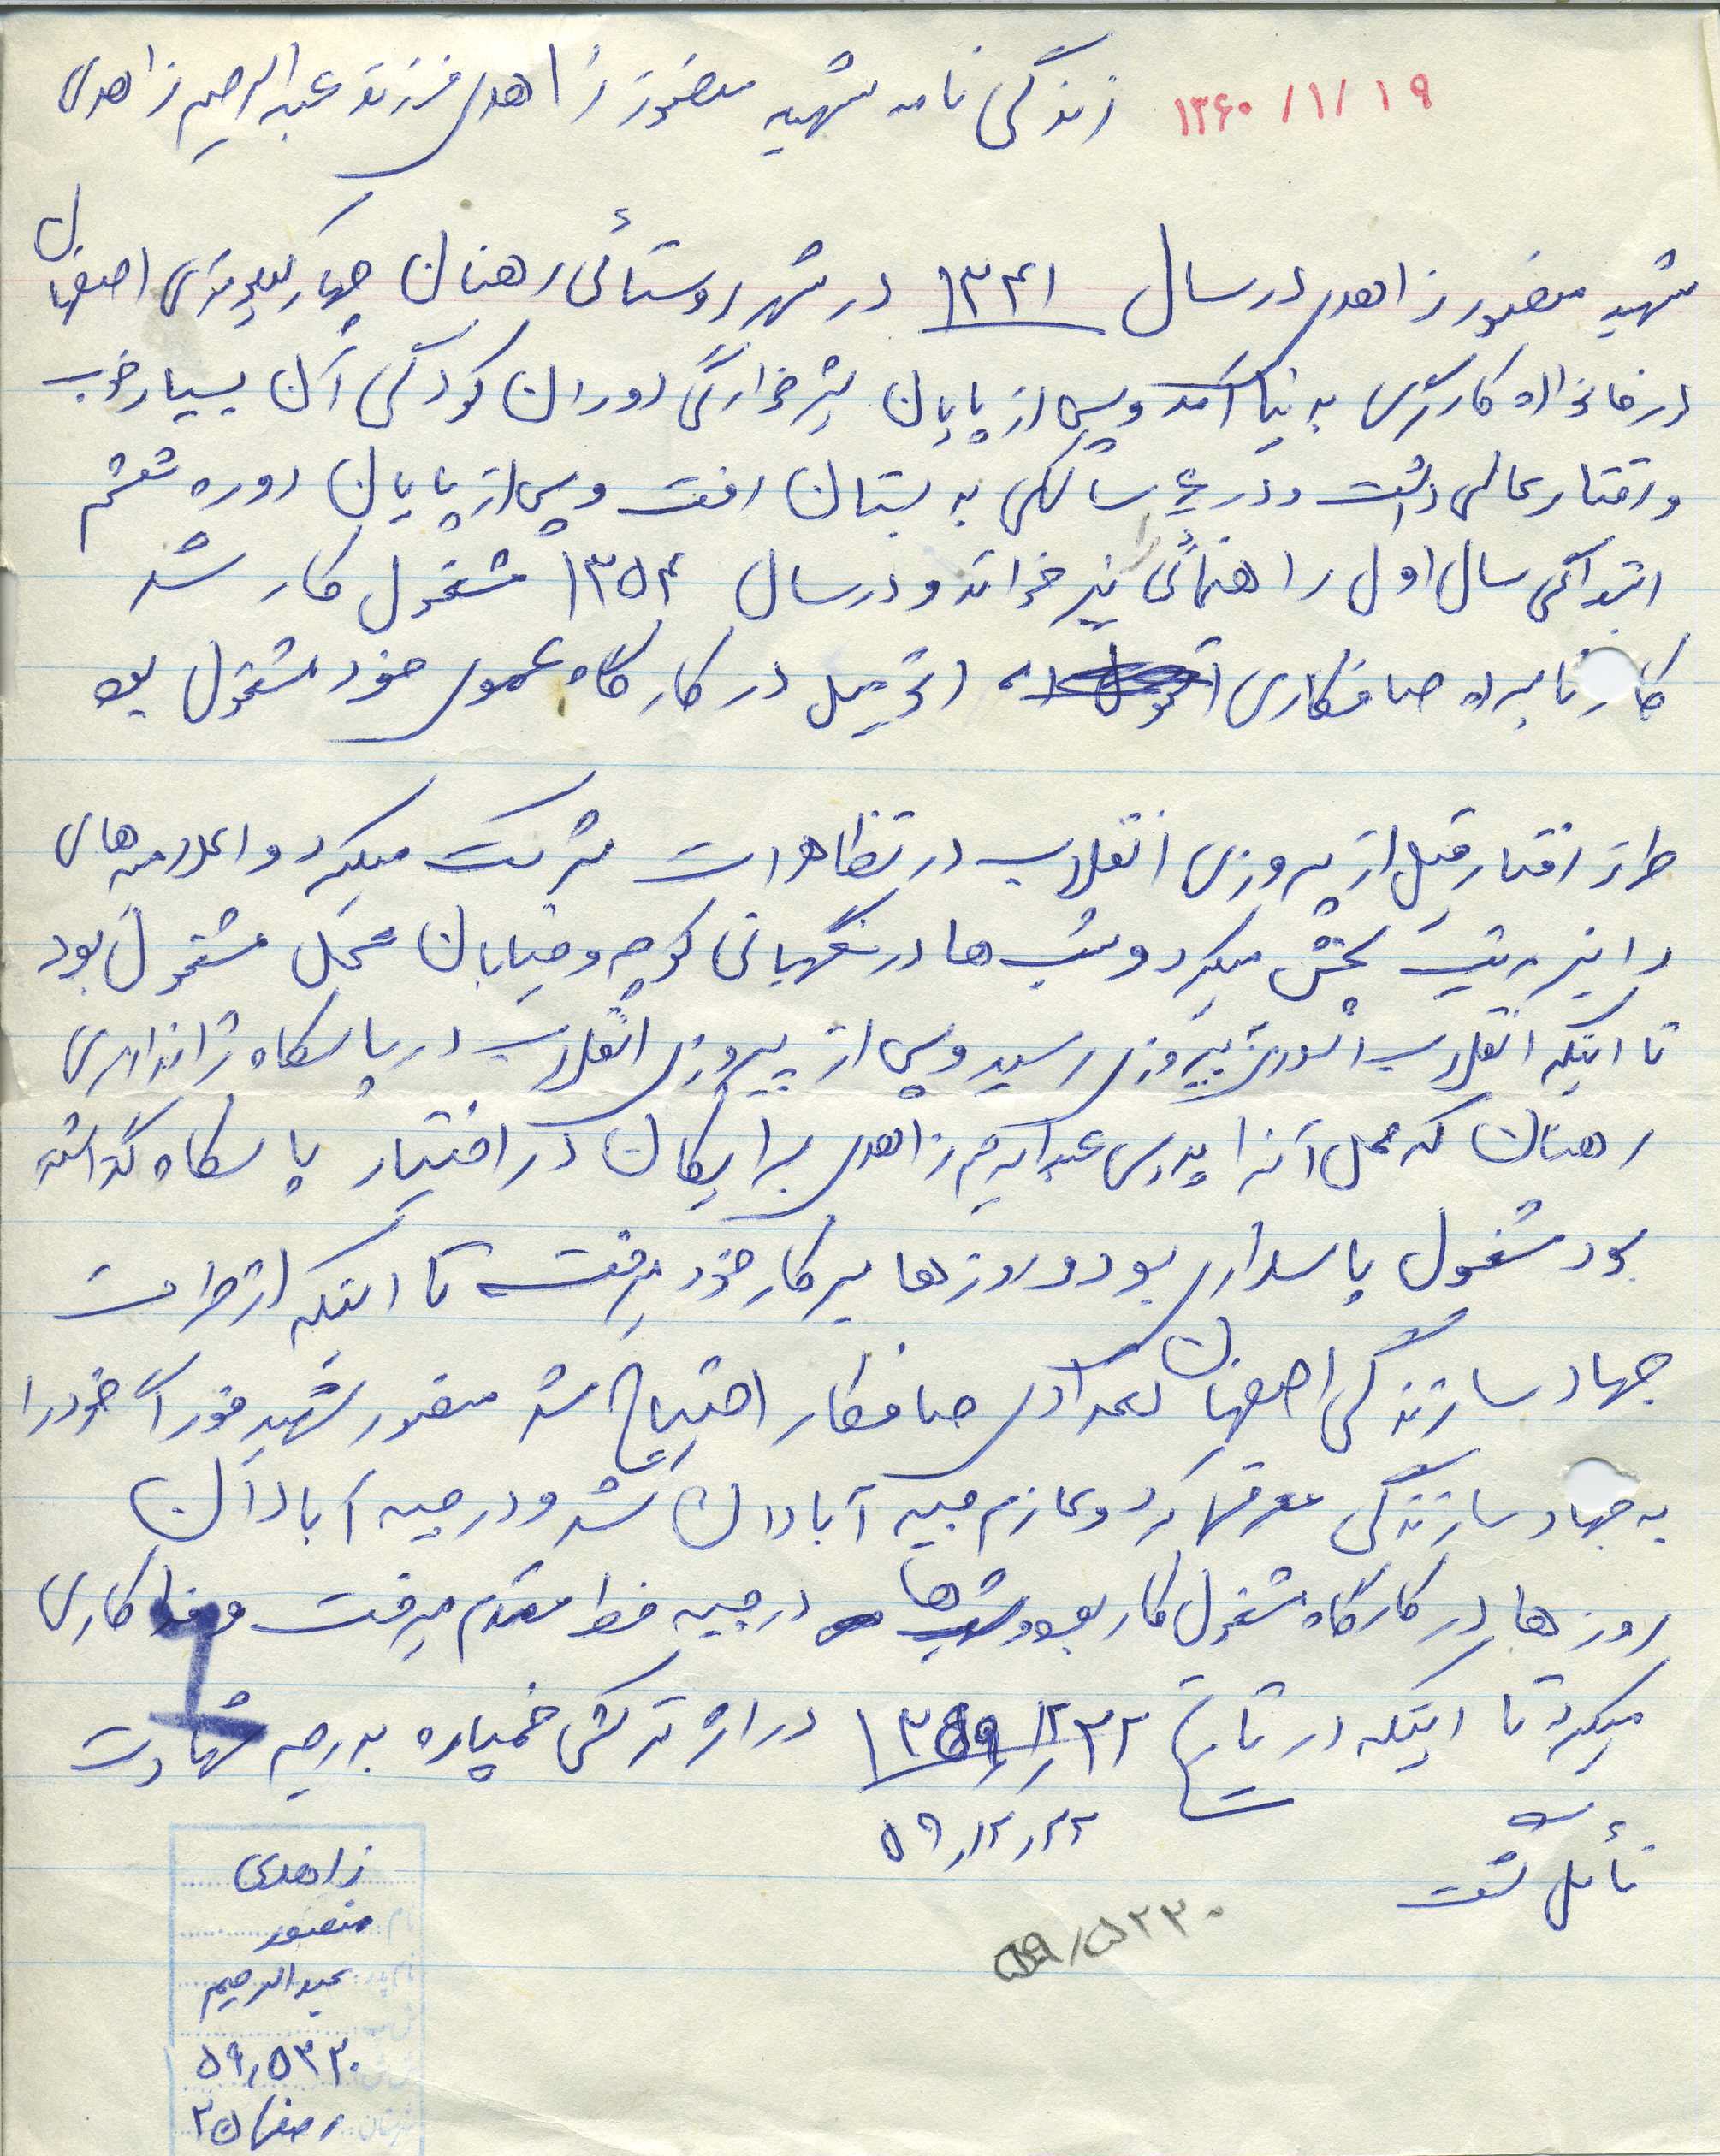 زندگی نامه شهید منصور زاهدی فرزند عبدالرحیم زاهدی ۱۳۶۰/۱/۱۹
شهید منصور زاهدی در سال ۱۳۴۱ در شهر روستائی رهنان چهار کیلومتری اصفهان
در خانواده کارگری به دنیا آمد و پس از پایان شیرخوارگی دوران کودکی آن بسیار خوب
و رفتار عالی داشت و در ۶ سالگی به دبستان رفت و پس از پایان دوره ششم
ابتدائی سال اول راهنمائی را نیز خواند و در سال ۱۳۵۴ مشغول کار شد
کار نامبرده صافکاری اتومبیل در کارگاه عموی خود مشغول بود
طرز رفتار قبل از پیروزی انقلاب در تظاهرات شرکت میکرد و اعلامیه های
را نیز پخش میکرد و شب ها در نگهبانی کوچه و خیابان محل مشغول بود
تا اینکه انقلاب پیروزی رسید و پس از پیروزی انقلاب در پاسگاه ژاندارمری
رهنان که محل آنرا پدرش عبدالرحیم زاهدی برایگان در اختیار پاسگاه گذاشته
بود مشغول پاسداری بود و روزها سر کار خود میرفت تا اینکه از طرف
جهاد سازندگی اصفهان تعدادی صافکار احتیاج شد منصور شهید فوراً خود را
به جهاد سازندگی معرفی کرد و عازم جبهه آبادان شد و در جبهه آبادان
روزها در کارگاه مشغول کار بود و شبها در جبهه خط مقدم میرفت و فداکاری
میکرد تا اینکه در تاریخ ۱۳۵۹/۱۲/۲۲ در اثر ترکش خمپاره به درجه شهادت
۵۹/۱۲/۲۲
نائل گشت
۵۹/۵۲۳۰
زاهدی
نام: منصور
نام پدر: عبدالرحیم
۵۹/۵۲۳۰
شهرستان: اصفهان ۲۵